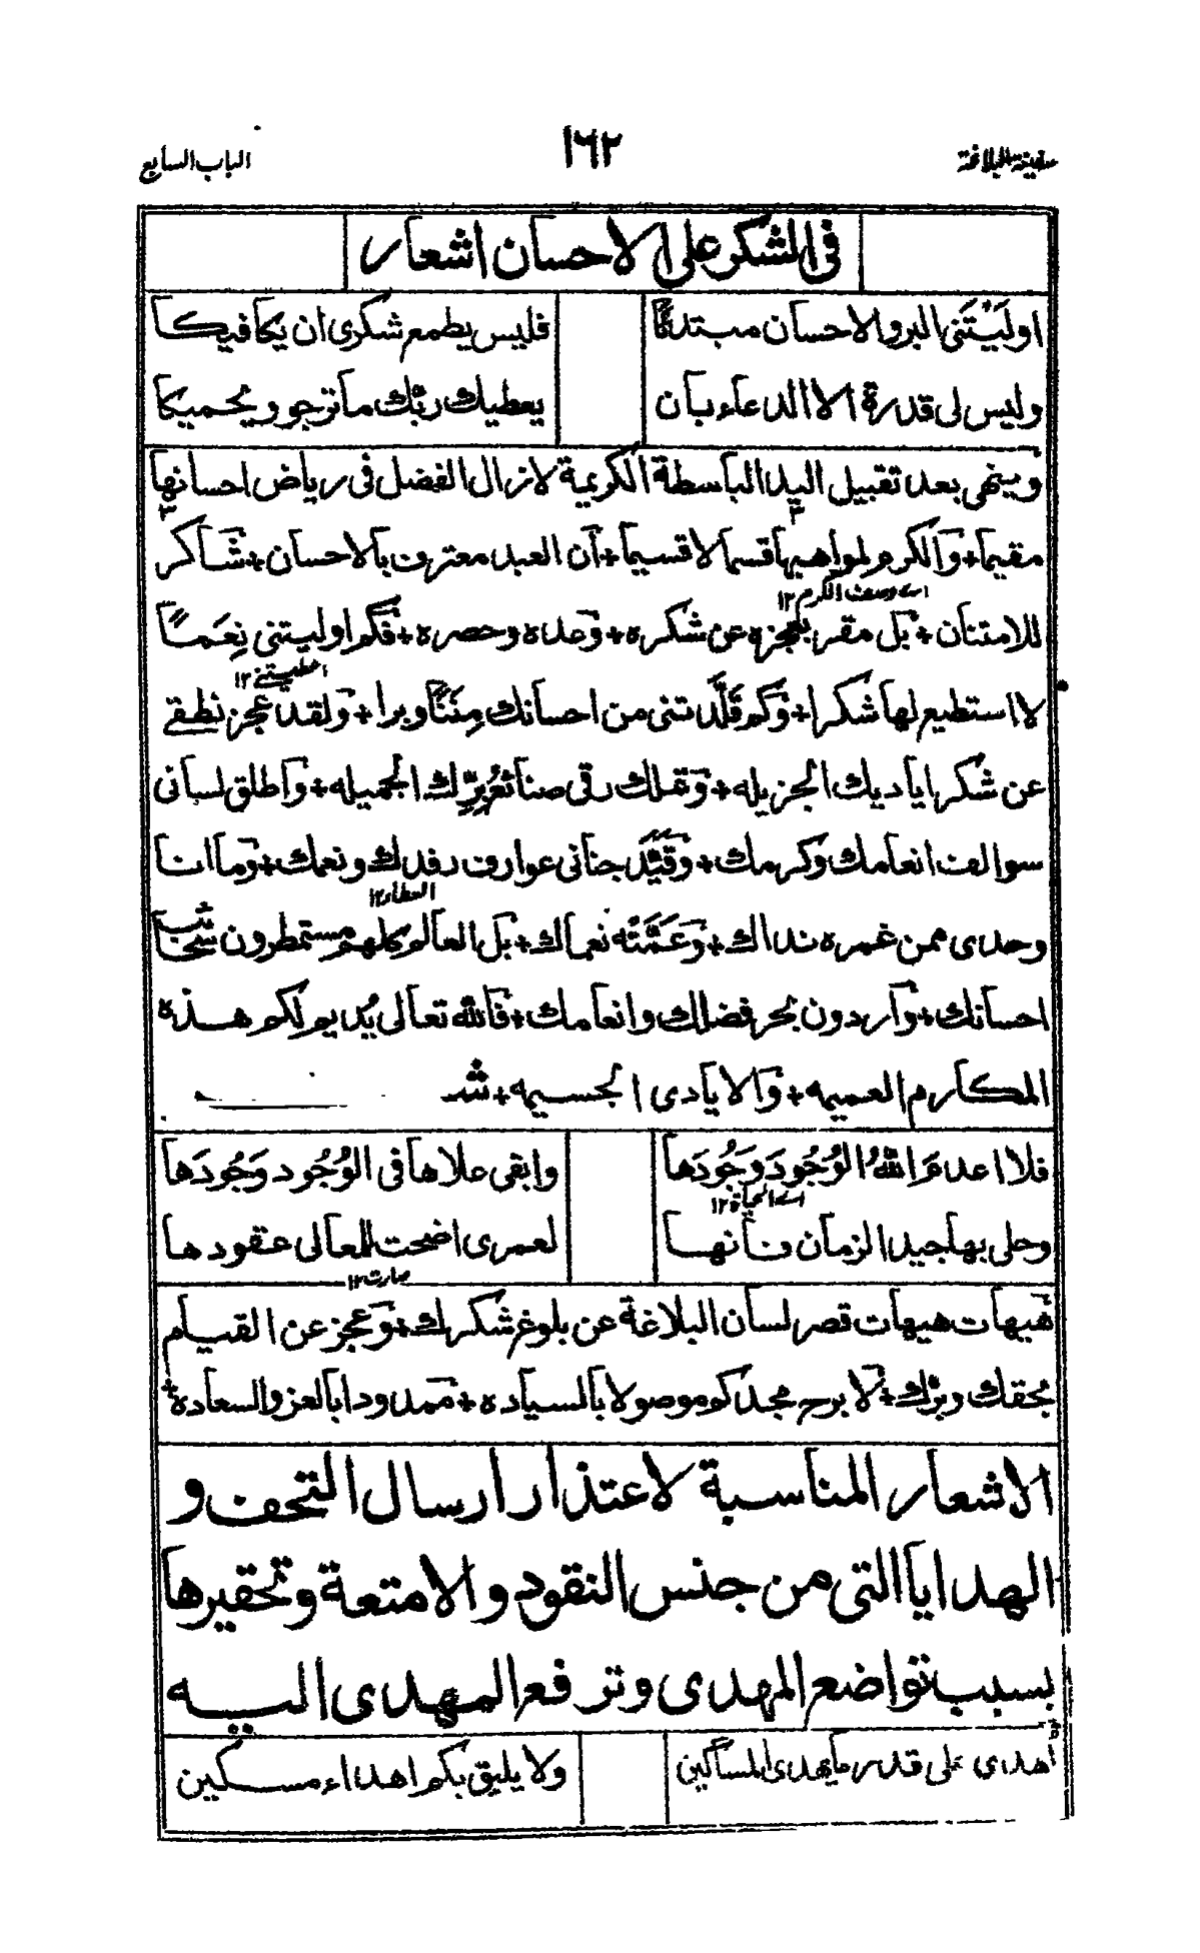 سفينة البلاغة
١٦٢
الباب السابع
فى الشكر على الاحسان اشعار
اوليتنى البر والاحسان مبتدئًا فليس يطمع شكرى ان يكافيكا
وليس لى قدرة الا الدعاء بان يعطيك ربك ما ترجو ويحميكا
وينهى بعد تقبيل اليد الباسطة الكريمة لا زال الفضل فى رياض احسانها
مقيما+ والكرم لمواهبها قسما لا قسيما+ ان العبد معترف بالاحسان+ شاكر
اے وصف الكرم ١٢
للامتنان+ بل مقر بعجزه عن شكره+ وعده وحصره+ فكم اوليتنى نِعَمًا
اعطيتنے ١٢
لا استطيع لها شكرا+ وكم قَلَّدتنى من احسانك مِنَنًا وبرا+ ولقد عجز نطقے
عن شكر اياديك الجزيله+ وتملك رقى صنائع بِرِّك الجميله+ واطلق لسانى
سوالف انعامك وكرمك+ وقيَّد جنانى عوارف رفدك ونعمك+ وما انا
العطاء ١٢
وحدى ممن غمره نداك+ وعَمَّتْه نعماك+ بل العالم كلهم مستمطرون سحائب
احسانك+ واردون بحر فضلك وانعامك+ فالله تعالى يُديم لكم هذه
المكارم العميمه+ والايادى الجسيمه+ شـ
فلا اعدمَ اللهُ الوُجُودَ وَجُودَها وابقى علاها فى الوُجُود وَجُودَها
اے الحياة ١٢
وحلى بها جيد الزمان فانها لعمرى اضحت للمعالى عقودها
صارت ١٢
فهيهات هيهات قصر لسان البلاغة عن بلوغ شكرك+ وعجز عن القيام
بحقك وبرّك+ لا برح مجدكم موصولا بالسياده+ ممدودا بالعز والسعادة+
الاشعار المناسبة لاعتذار ارسال التحف و
الهدايا التى من جنس النقود والامتعة وتحقيرها
بسبب تواضع المهدى وترفع المهدى اليه
اهدى على قدر ما يهدى المساكين ولا يليق بكم اهداء مسكين